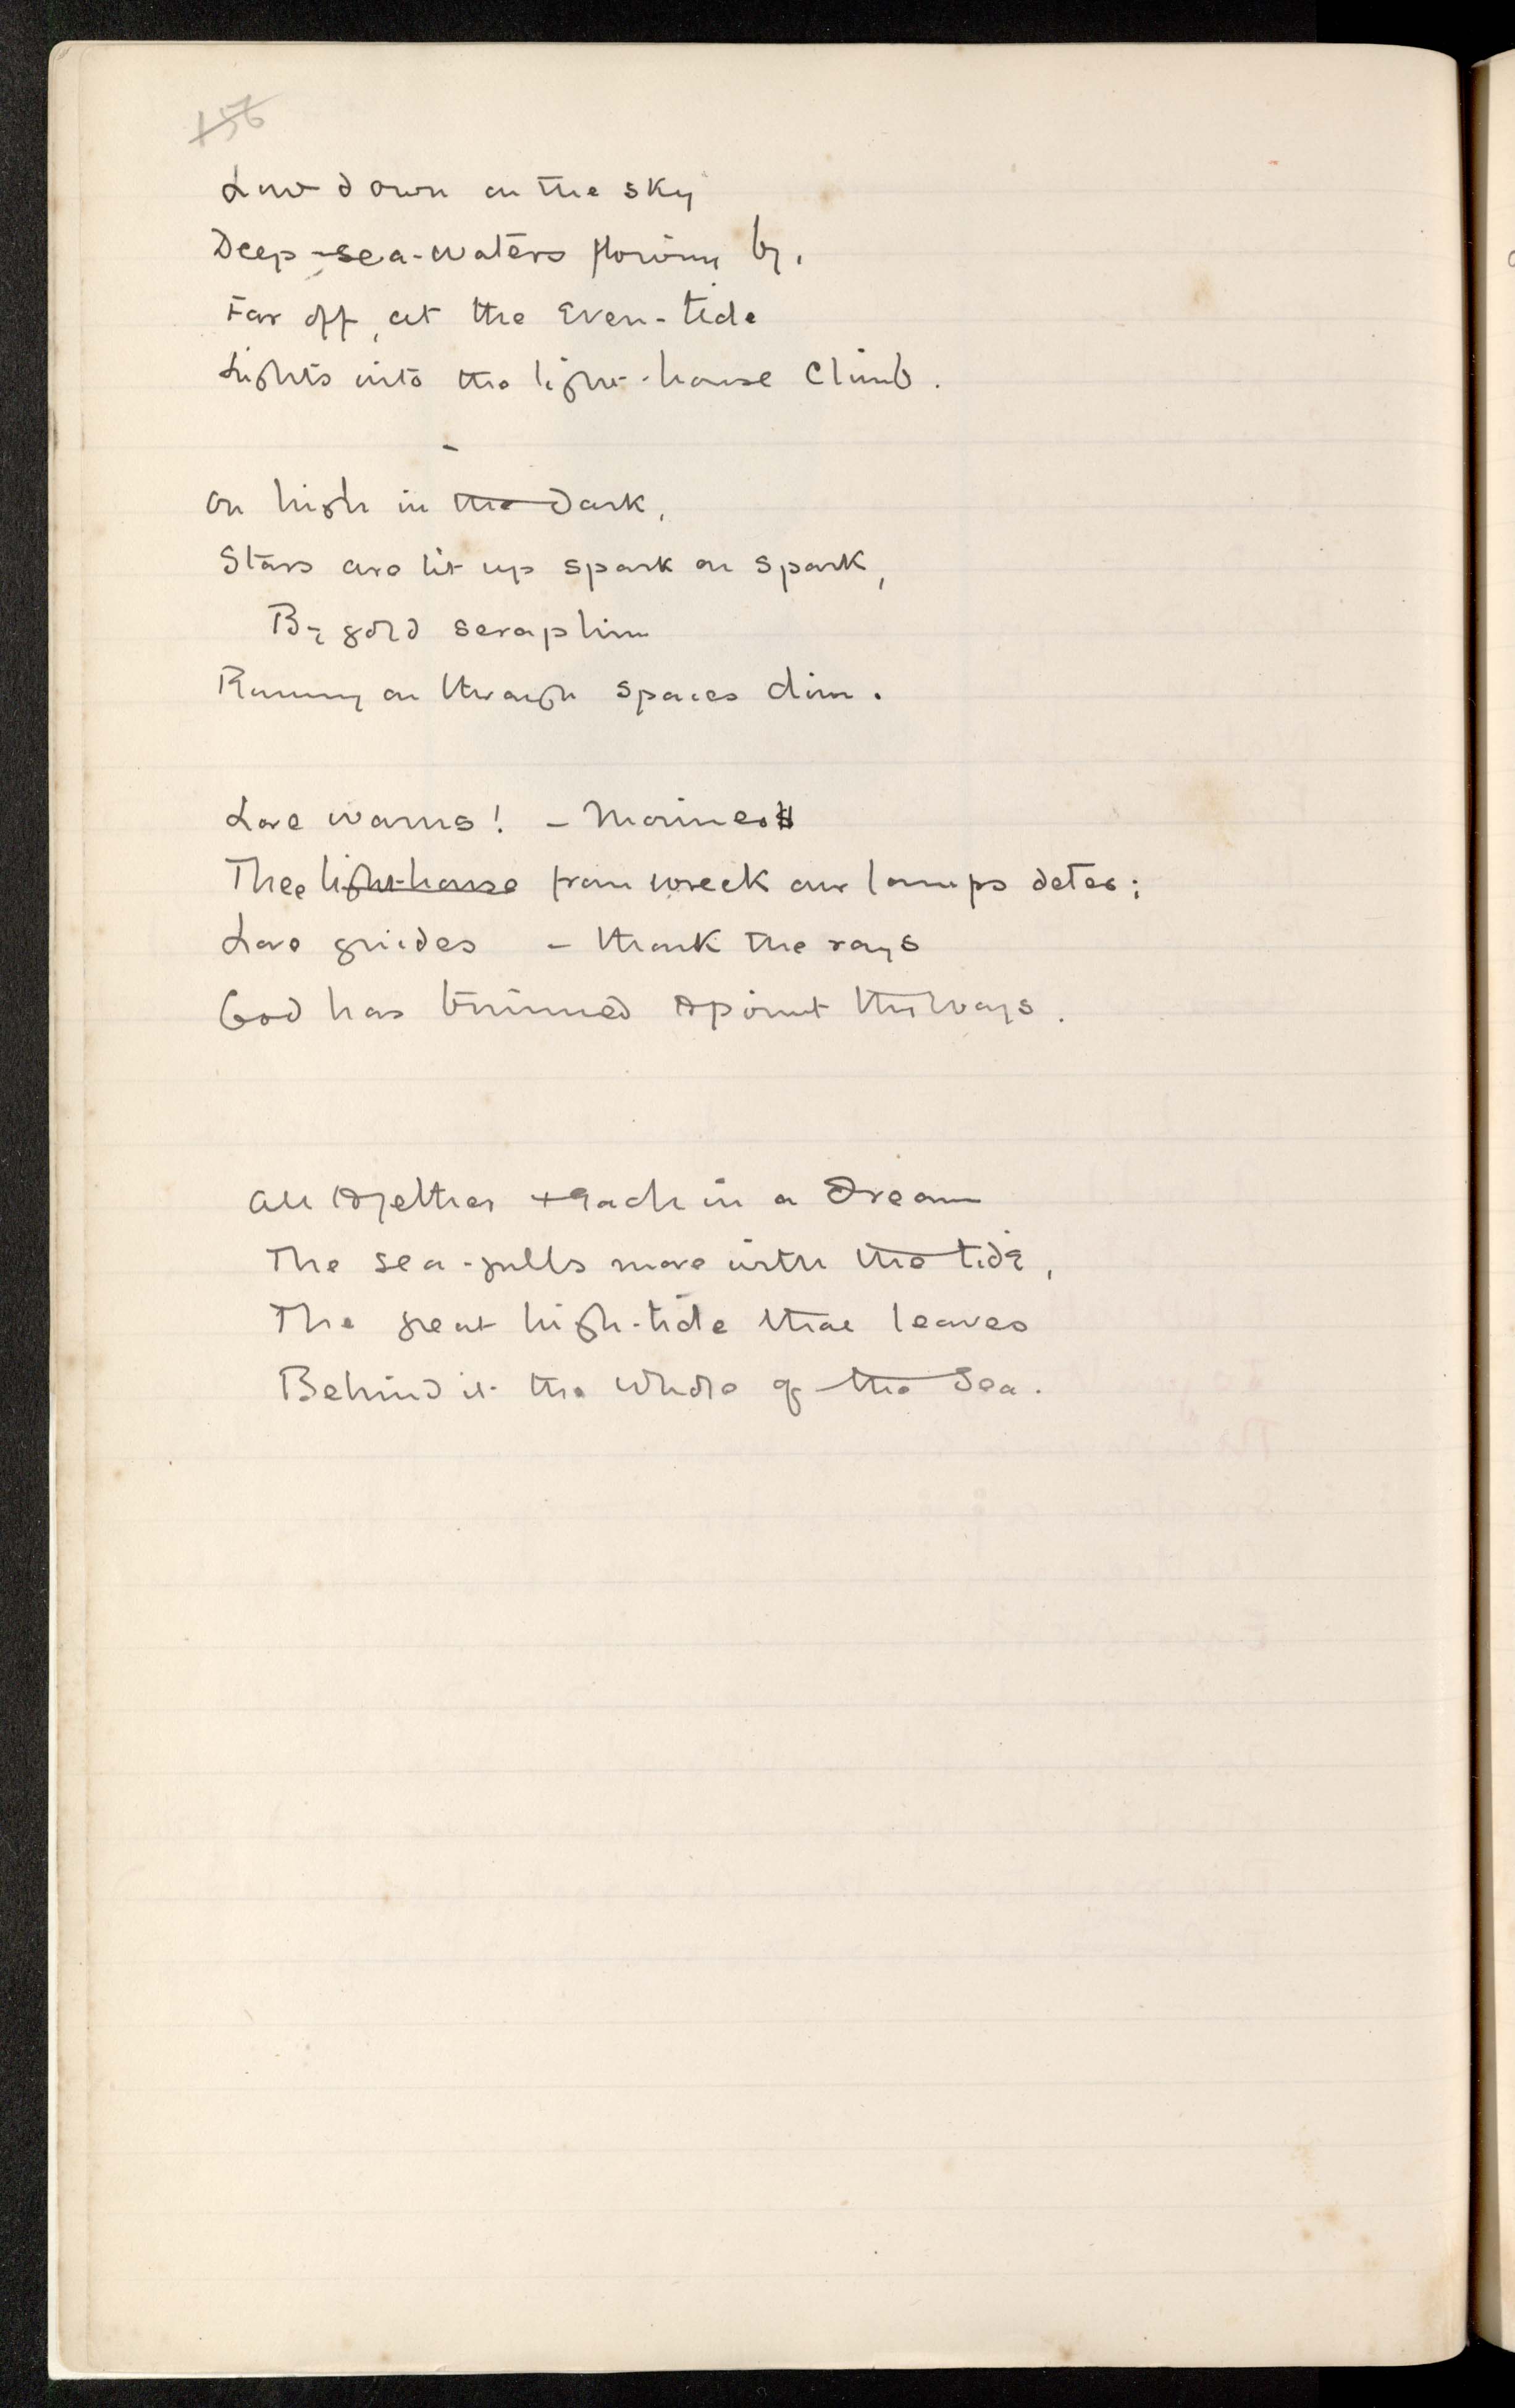 156
Low down on the sky
Deep-sea-waters flowing by,
Far off, at the Even-tide
Lights into the light-house Climb.
On high in the Dark,
Stars are lit up spark on spark,
By gold seraphim
Running on through spaces dim.
Love warns! - Mariner
Thee light-house from wreck our lamps deter;
Love guides - thank the rays
God has trimmed to point thy ways.
All together + each in a Dream
The sea-gulls move with the tide,
The great high-tide that leaves
Behind it the whole of the Sea.